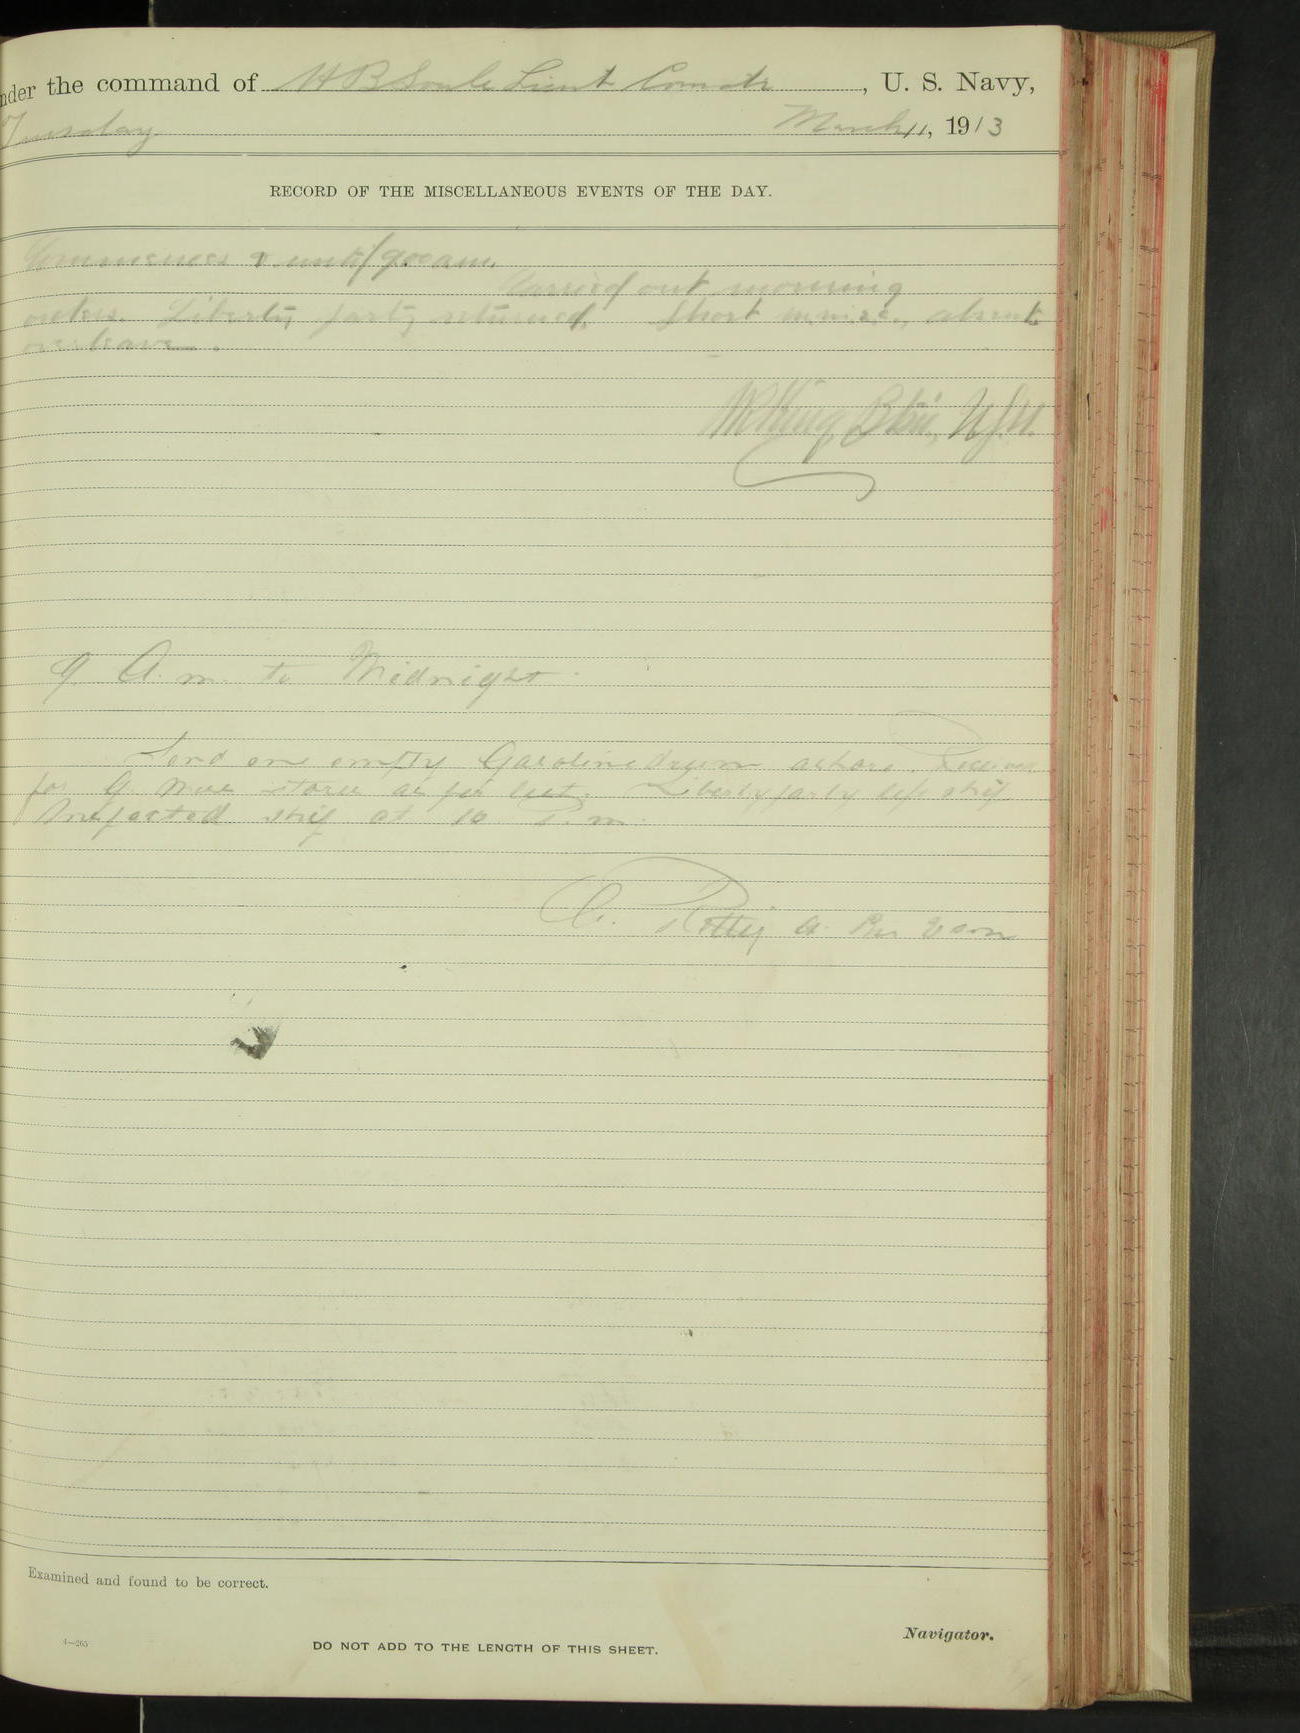 nder the command of H B Soule Lieut Comdr, U. S. Navy,
Tuesday March 11, 1913
RECORD OF THE MISCELLANEOUS EVENTS OF THE DAY.
Commences & until 9:00 am.
Carried out morning
orders. Liberty party returned. Short absent
overleave.
King Btsn, U.S.N.
9 A.m. to Midnight
Send one empty Gasoline drum ashore.
for G. stores as per list. Liberty party left ship
Inspected ship at 10 P.m.
A.
Examined and found to be correct.
4—265
DO NOT ADD TO THE LENGTH OF THIS SHEET.
Navigator.